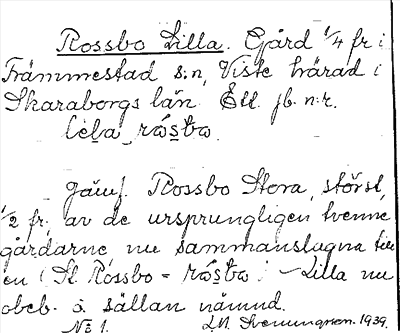 Rossbo Lilla. Gård 1/4 fr i
Främmestad s:n, Viste härad i
Skaraborgs län. Ett jb. n:r.
lila rósbo
Jämf. Rossbo Stora, störst,
1/2 fr. av de ursprungligen tvenne
gårdarne, nu sammanslagna till
en (St. Rossbo = rósbo) – Lilla nu
obeb. o sällan nämnd.
No 1. Svenungsson. 1939.